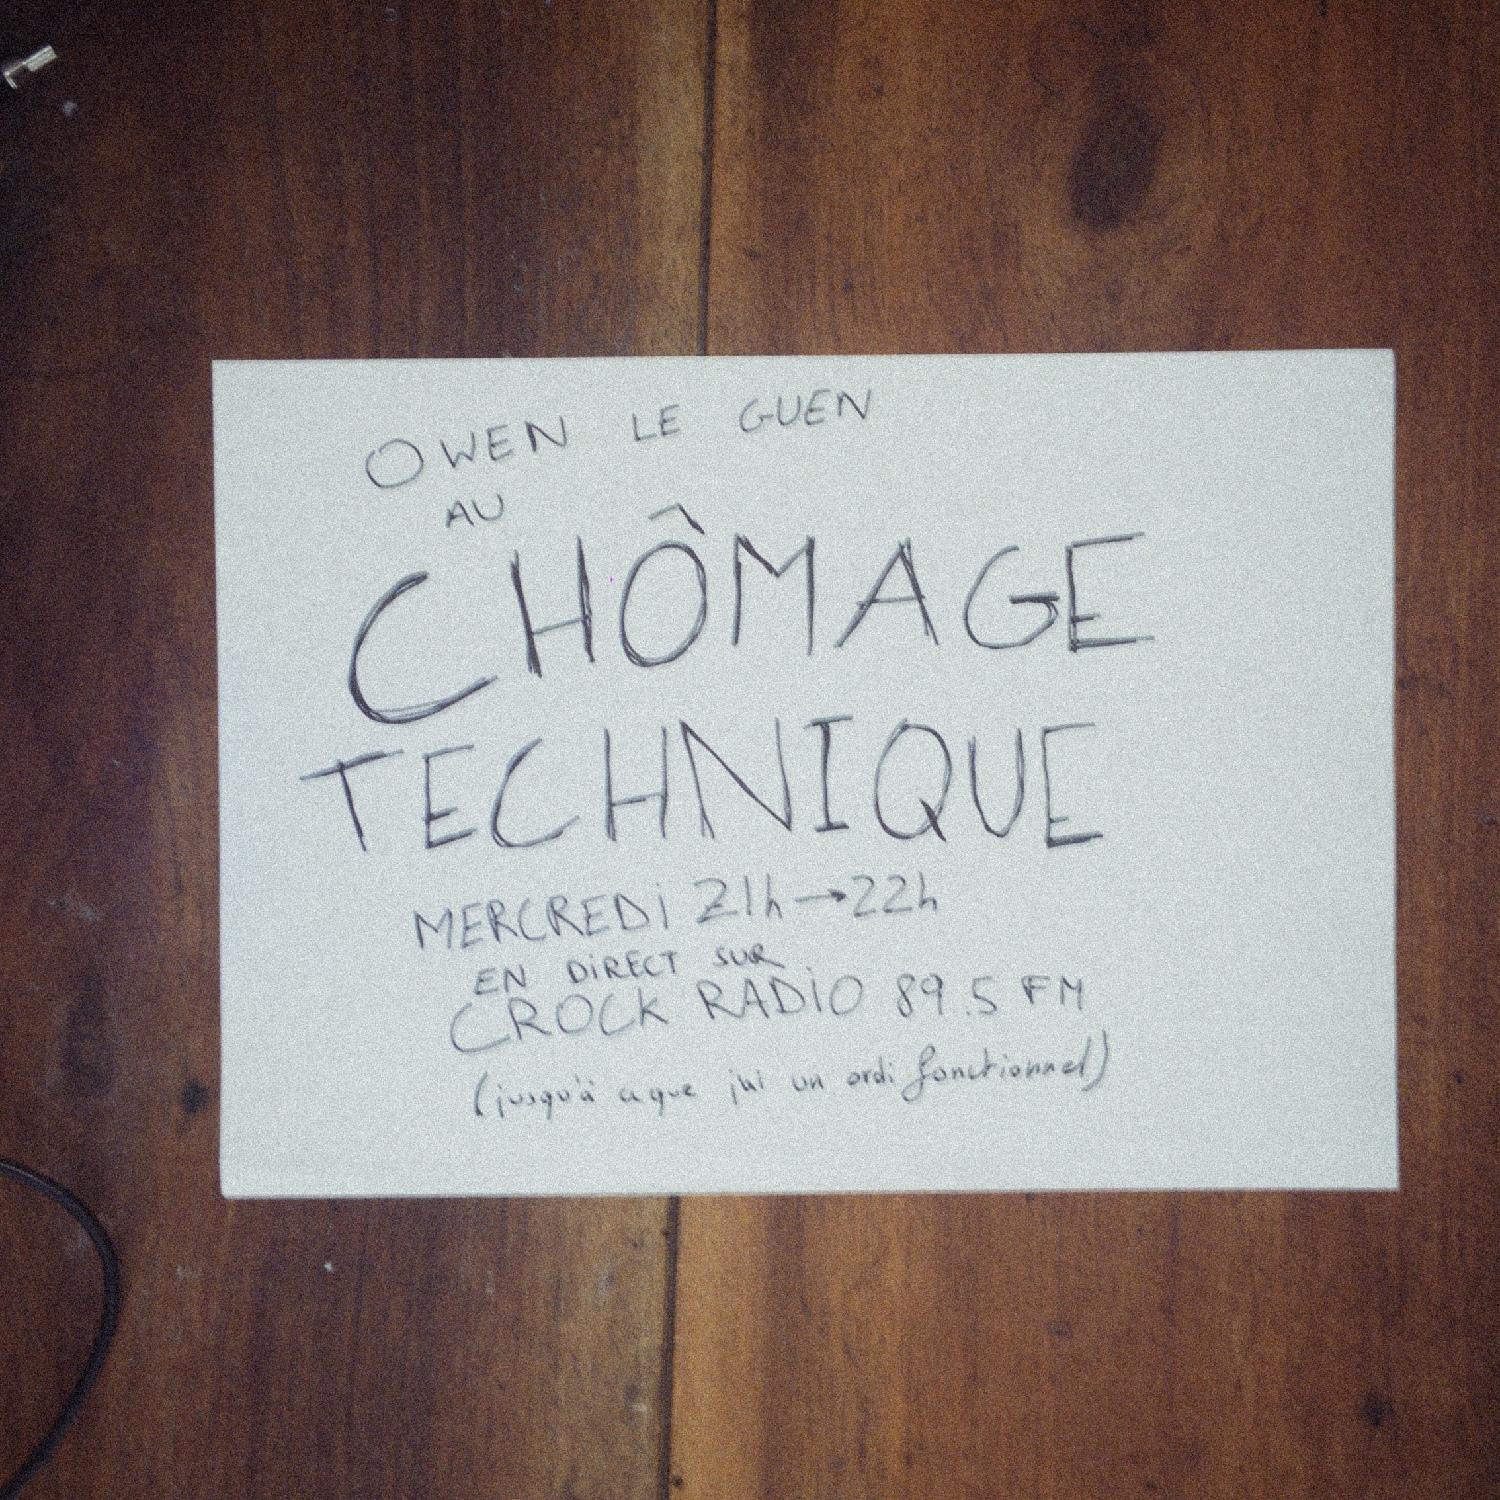 OWEN LE GUEN
AU
CHÔMAGE
TECHNIQUE
MERCREDi 21h→22h
EN DiRECT SUR
CROCK RADiO 89.5 FM
(jusqu'à ce que j'ai un ordi fonctionnel)